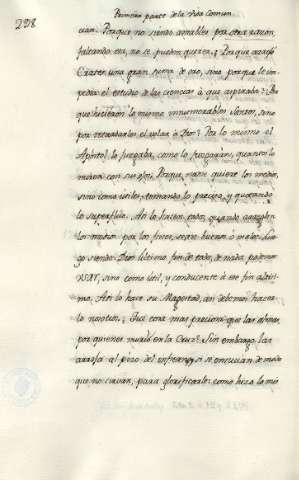 Primera parte de la Vida Comun.
228
cian. Porque no siendo amables por otra razon,
faltando esa, no se pueden querer. ¿Porque arrojó
Crates una gran suma de oro, sino porque le im-
pedia el estudio de las ciencias à que aspiraba? ¿Por
que hicieron lo mismo innumerables Santos, sino
por retardarles el volar à Dios? Por lo mismo el
Apóstol lo juzgaba, como lo juzgarán, quantos lo
miren con sus ojos. Porque nadie quiere los medios,
sino como utiles, tomando lo preciso, y quitando
lo superfluo. Asi lo hacen todos, quando arreglan
los medios por los fines, sean buenos ò malos. Lue-
go siendo Dios ultimo fin de todo, de nada podemos
usar, sino como util, y conducente à ese fin ultimo.
mo. Asi lo hace su Magestad, asi debemos hacer-
lo nosotros. ¿Que cosa mas preciosa que las almas,
por quienes murió en la Cruz? Sin embargo las
arroja al pozo del infierno, si se envician de modo
que no sirvan, para glorificarle: como hizo lo mis